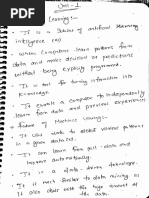 Unit-1
Learning:-
It is a Subset of artificial learning
intelligence (AI)
when computer learn patterns from
data and make decision or predictions
without being explicity programmed.
It is a tool for turning information into
knowledge.
It enable a computer to independently
learn from data and previous experiences
Feature of Machine Learning:-
It use data to detect various patterns
in a given dataset.
It can learn from past data and
improve automatically.
It is a data-driven technology.
It is much similar to data mining as
it also deals with the huge amount of
the data.